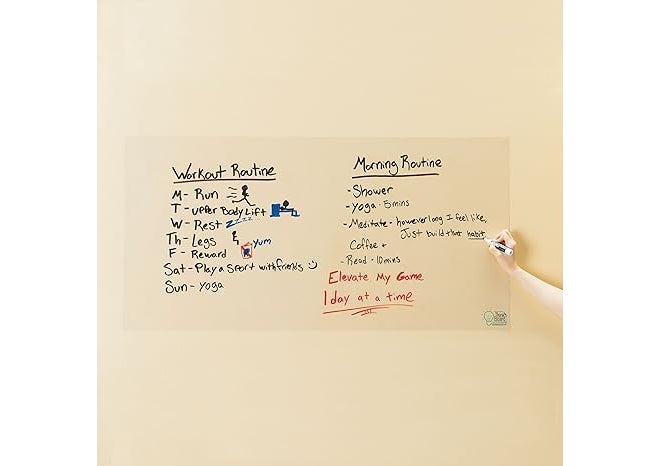 Workout Routine
M- Run
T- upper Body Lift
W- Rest zzzz
Th- Legs
F- Reward Yum
Sat- Play a Sport with friends :)
Sun- Yoga
Morning Routine
-Shower
-Yoga · 5 mins
-Meditate - however long I feel like,
Just build that habit
Coffee +
-Read · 10 mins
Elevate My Game
1 day at a time